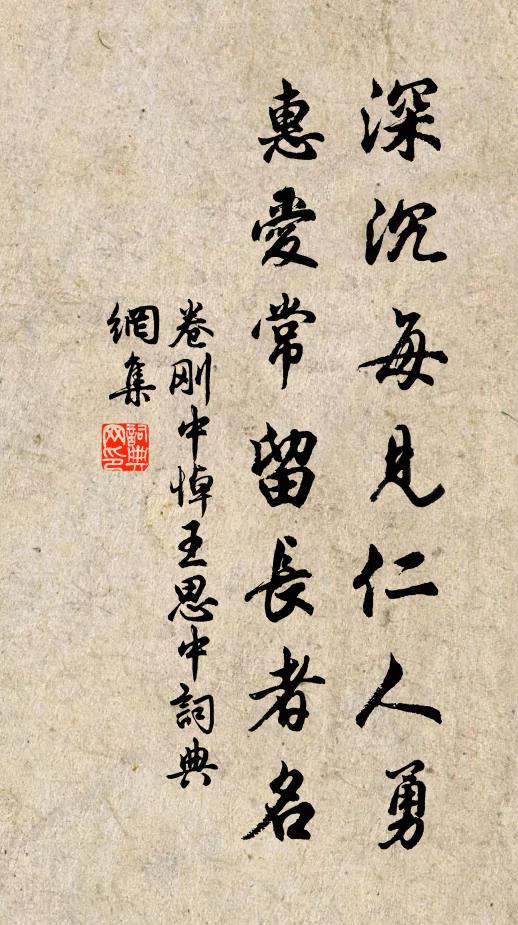 深沉每見仁人勇
惠愛常留長者名
卷剛中悼王思中詞典
網集
詞典
网印